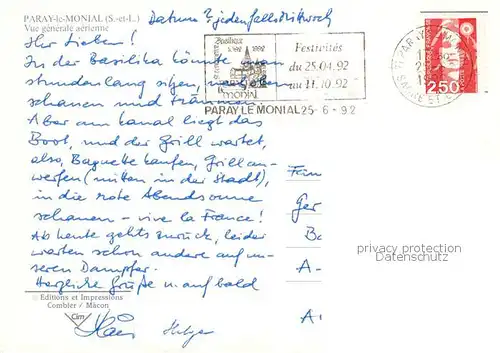 PARAY-le-MONIAL (S.-et-L.)
Vue générale aérienne
Datum ? jedenfalls Mittwoch
Ihr Lieben!
In der Basilika könnte man
stundenlang sitzen,
schauen und träumen
Aber am Kanal liegt das
Boot, und der Grill wartet,
also, Baguette kaufen, Grill an-
werfen (mitten in der Stadt),
in die rote Abendsonne
schauen – vive la France!
Ab heute gehts zurück, leider
warten schon andere auf un-
seren Dampfer.
Herzliche Grüße u. auf bald
Basilique
1092 1992
Festivités
du 25.04.92
au 11.10.92
PARAY LE MONIAL 25-6-92
2,50
Fam
Ger
A -
privacy protection
Datenschutz
Editions et Impressions
Combier / Mâcon
Cim
Holger